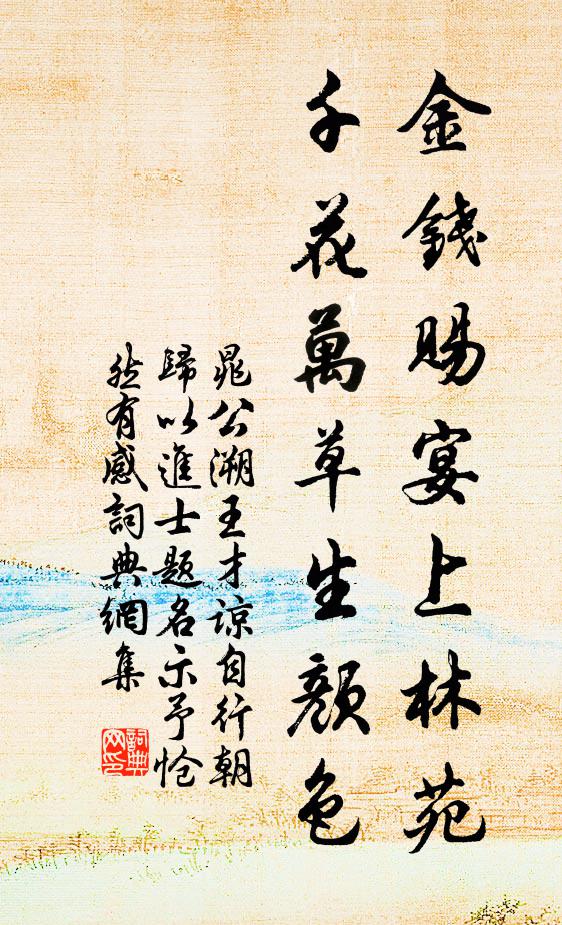 金錢賜宴上林苑
千花萬草生顏色
晁公溯王才諒自行朝
歸以進士題名示予愴
然有感詞典網集
詞典网印